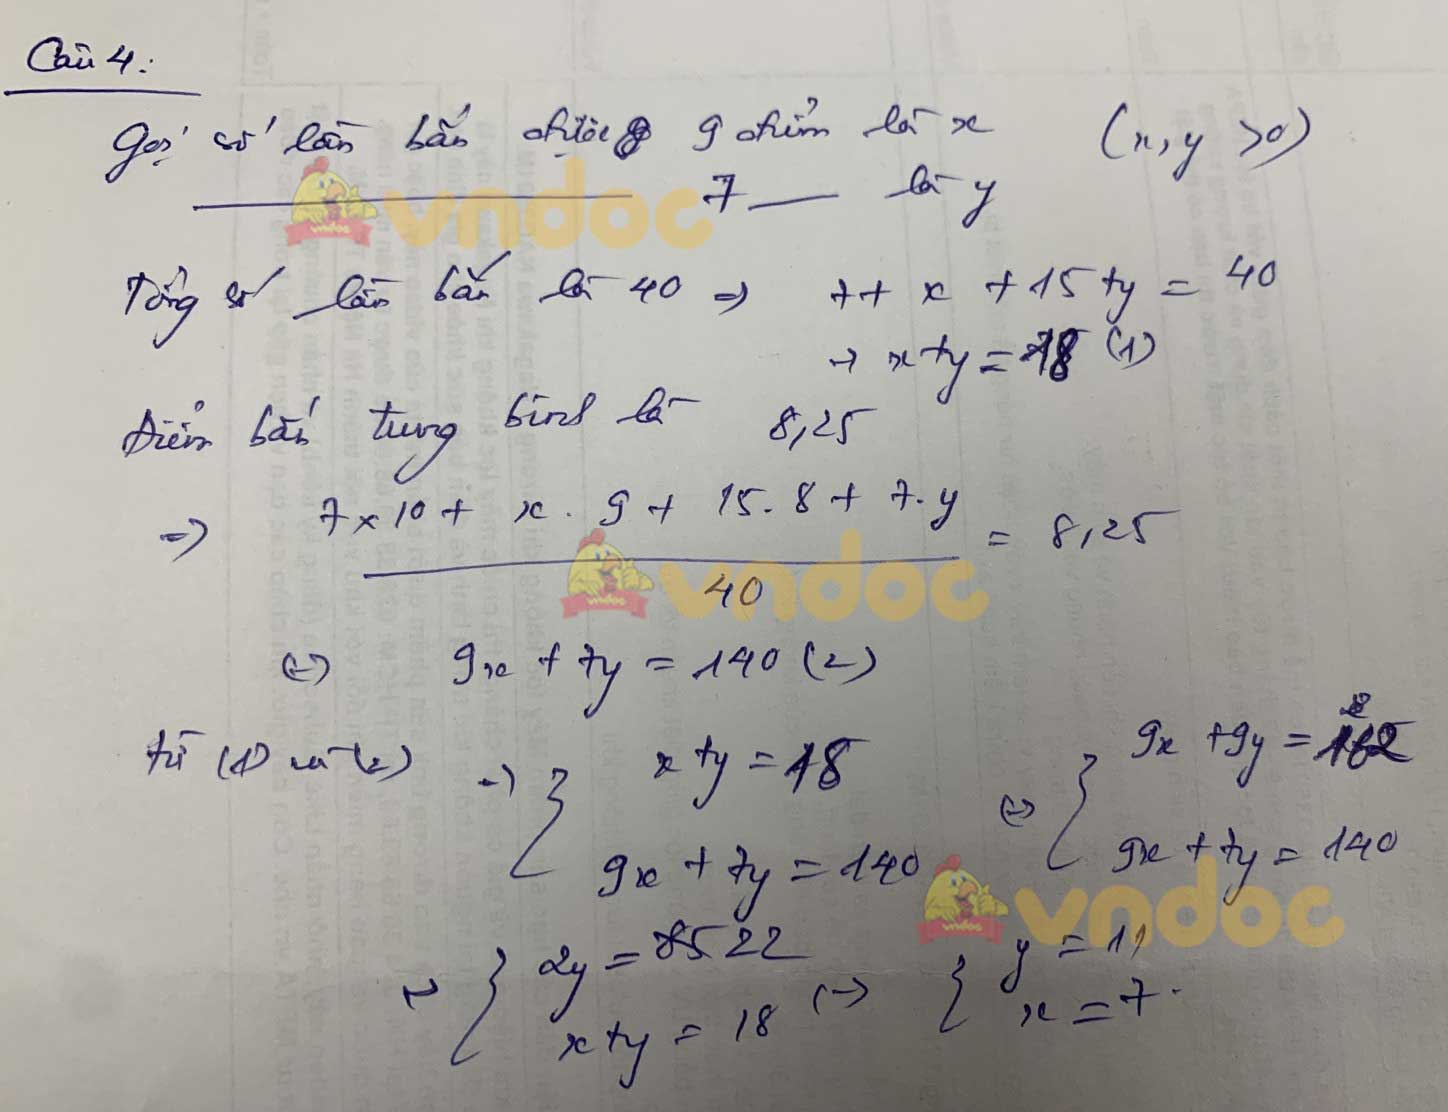 Câu 4:
Gọi số lần bắn được 9 điểm là x (x, y > 0)
7 là y
Tổng số lần bắn là 40 => 7 + x + 15 + y = 40
→ x + y = 18 (1)
Điểm bắn trung bình là 8,25
=> 7 x 10 + x . 9 + 15 . 8 + 7 . y
= 8,25
40
<=> 9x + 7y = 140 (2)
từ (1) và (2) => { x + y = 18 <=> { 9x + 9y = 162
9x + 7y = 140 9x + 7y = 140
{ 2y = 22 <=> { y = 11
x + y = 18 x = 7
vndoc
vndoc
vndoc
vndoc
vndoc
vndoc